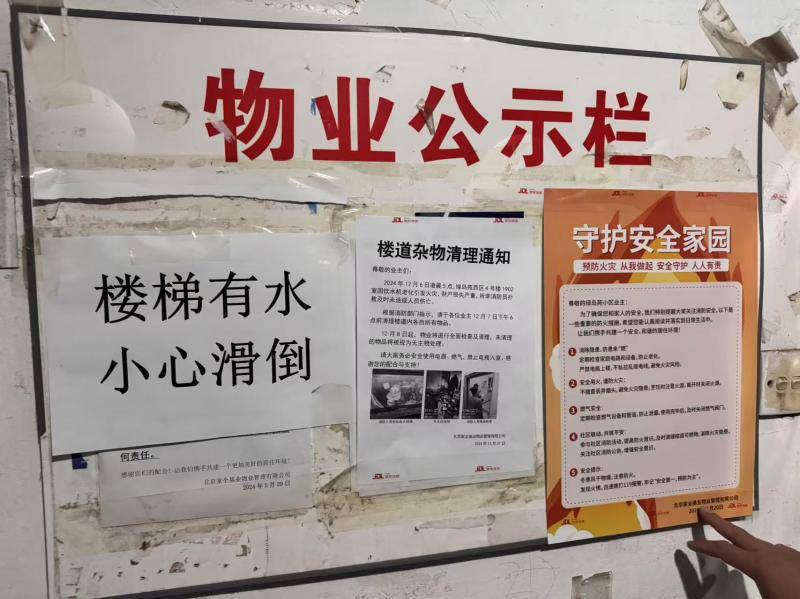 物业公示栏
楼梯有水
小心滑倒
何责任。
感谢您们的配合！让我们携手共建一个更加美好的居住环境！
北京家全基业物业管理有限公司
2024年5月29日
JDL
楼道杂物清理通知
尊敬的业主们：
2024年12月6日凌晨5点，绿岛苑西区4号楼1902
室因饮水机老化引发火灾，财产损失严重，所幸消防员扑
救及时未造成人员伤亡。
根据消防部门指示，请于各位业主12月7日下午6
点前清理楼道内各自所有物品。
12月8日起，物业将进行全面检查及清理，未清理
的物品将被视为无主物处理。
请大家务必安全使用电器、燃气，禁止电瓶入室，感
谢您的配合与支持！
北京家全基业物业管理有限公司
JDL
JDL
JDL
守护安全家园
预防火灾 从我做起 安全守护 人人有责
尊敬的绿岛苑小区业主：
为了确保您和家人的安全，我们特别提醒大家关注消防安全。以下是
一些重要的防火措施，希望您能认真阅读并落实到日常生活中。
让我们携手共建一个安全、和谐的居住环境！
1 消除隐患，防患未“燃”
定期检查家庭电路和设备，防止老化。
严禁电瓶上楼，不私拉乱接电线，避免火灾风险。
2 安全用火，谨防火灾：
不随意丢弃烟头，避免火灾隐患。烹饪时注意火源，离开时关闭火源。
3 燃气安全：
定期检查燃气设备和管道，防止泄漏。使用完毕后，及时关闭燃气阀门。
4 社区联动，共筑平安：
参与社区消防活动，提高防火意识。及时清理楼道可燃物，消除火灾隐患。
关注社区消防公告，增强安全意识。
5 安全提示：
冬季风干物燥，注意防火。
发现火情，迅速拨打119报警，牢记“安全第一，预防为主”。
北京家全基业物业管理有限公司
JDL
JDL